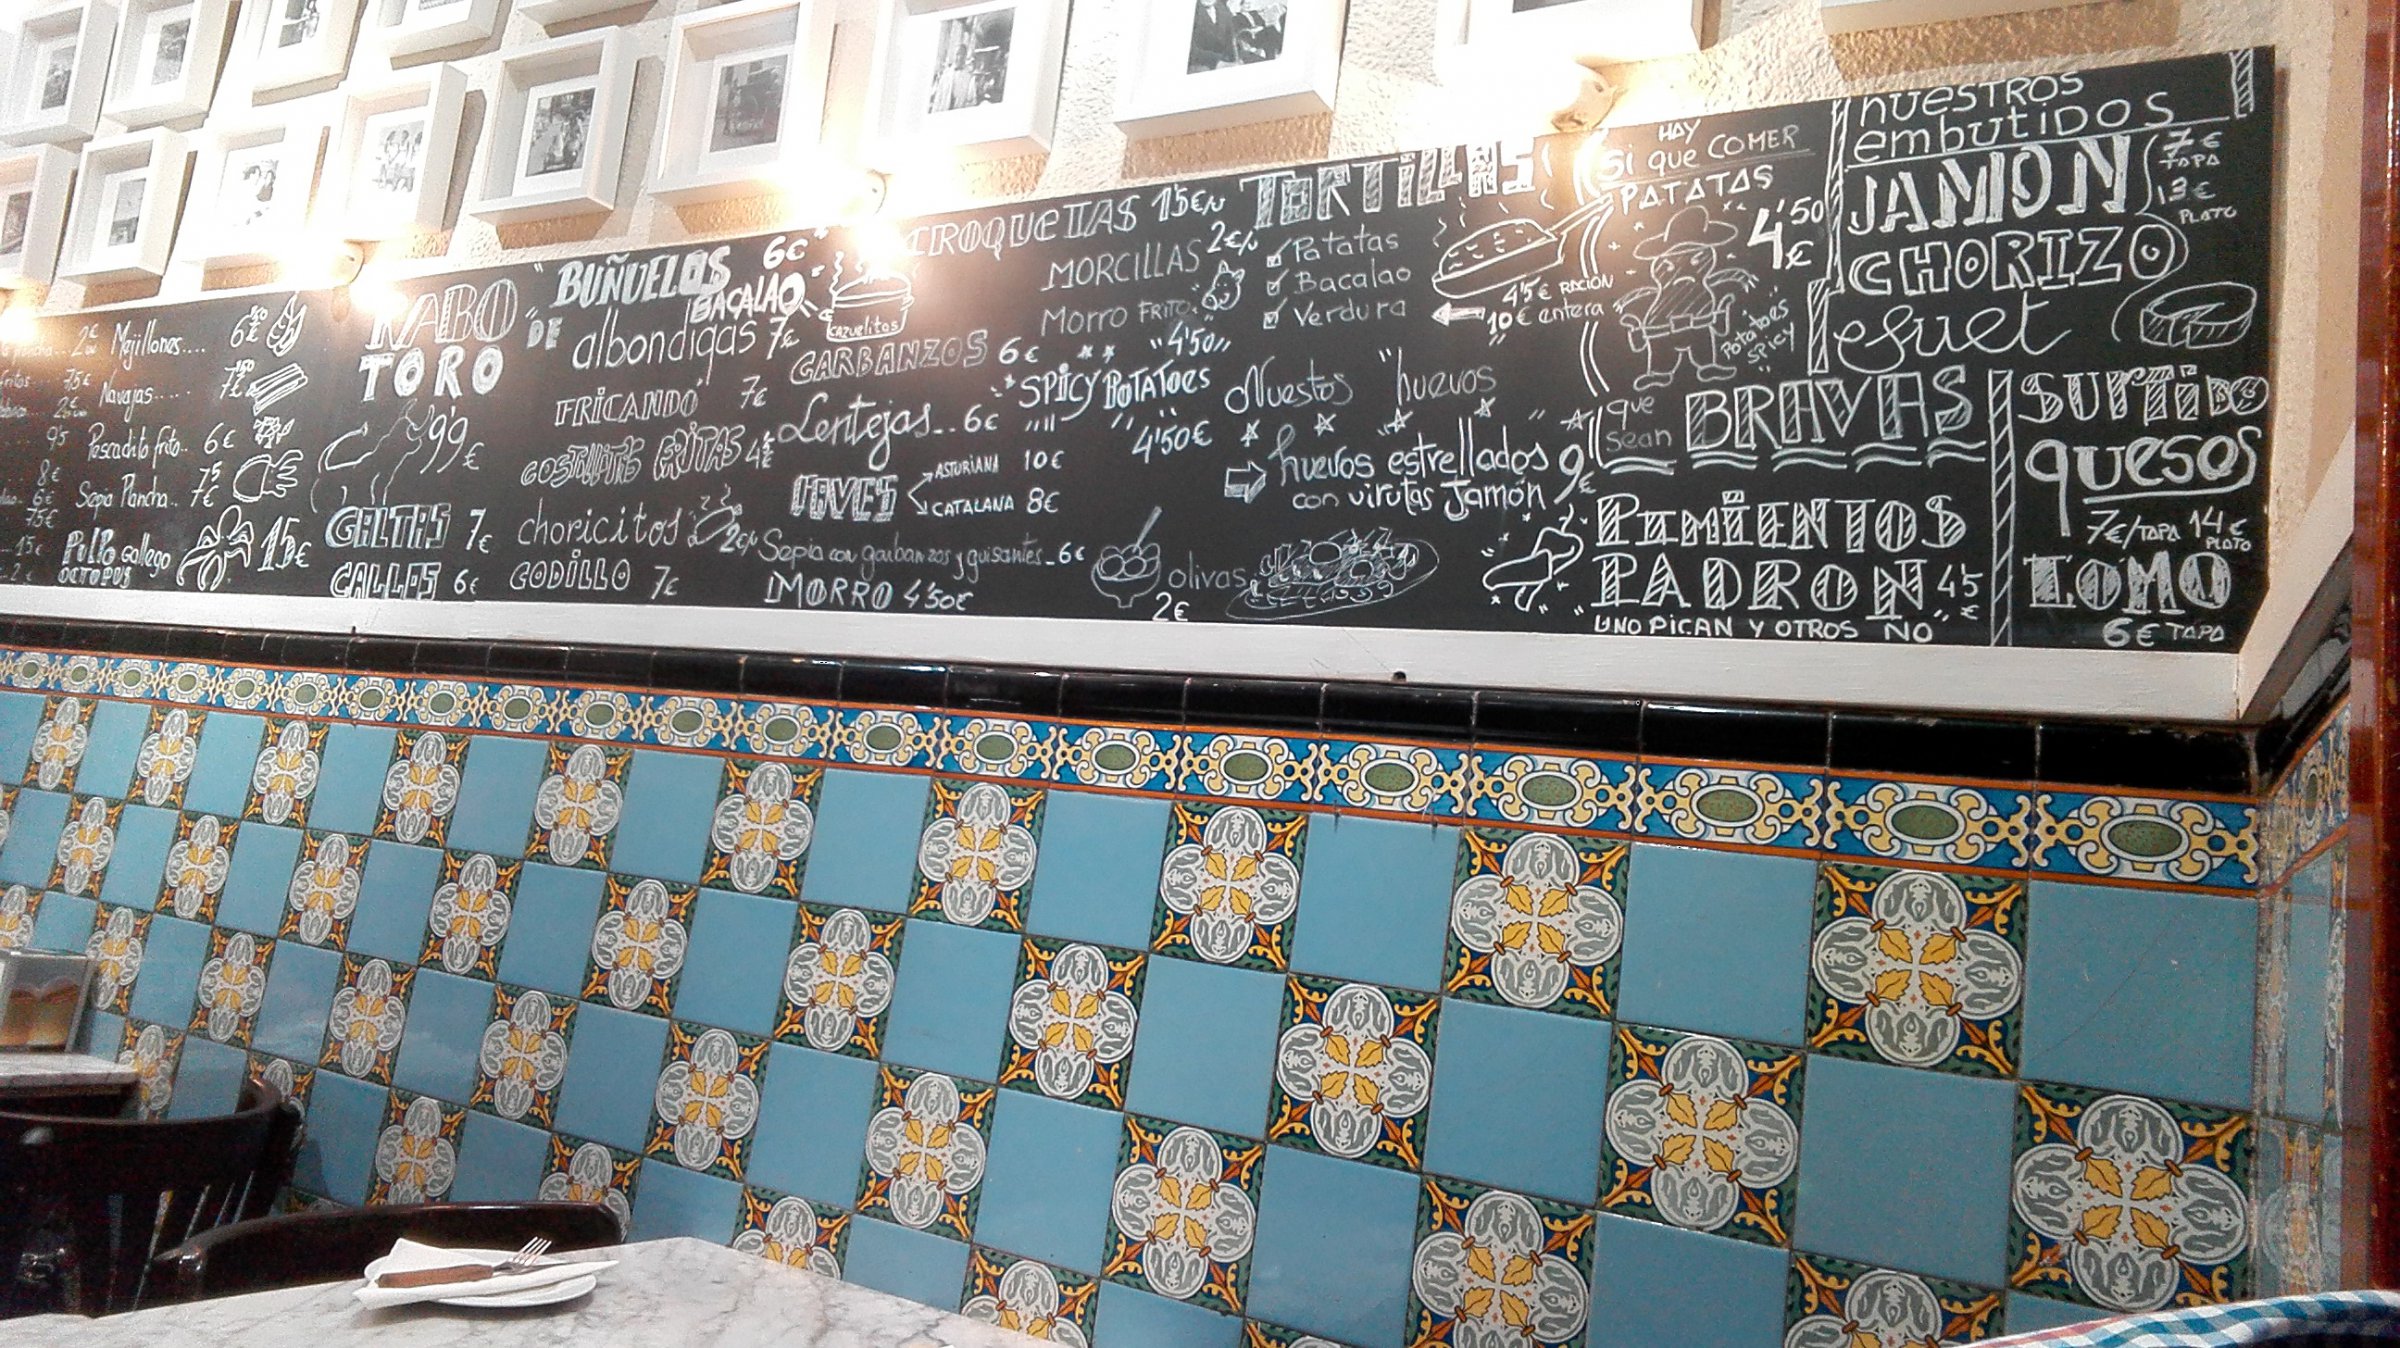 2€ Mejillones.... 6'50€
7'5€ Navajas..... 7'50€
9'5 Pescadito frito.. 6€
8€ Sepia Plancha.. 7'5€
6€
7'5€
15€ PULPO gallego 15€
OCTOPUS
2€
RABO DE
TORO
9'9€
GALTAS 7€
CALLOS 6€
"BUÑUELOS 6€
BACALAO
albondigas 7€
FRICANDÓ 7€
COSTILLITAS FRITAS
choricitos 2€/u
CODILLO 7€
cazuelitas
GARBANZOS 6€
Lentejas.. 6€
FAVES ASTURIANA 10€
CATALANA 8€
Sepia con garbanzos y guisantes_6€
MORRO 4'50€
CROQUETAS 1'5€/u
MORCILLAS 2€/u
Morro FRITO
"4'50"
SPICY POTATOES
4'50€
olivas
2€
TORTILLAS
Patatas
Bacalao
Verdura
4'5€ RACIÓN
10€ entera
Nuestos "huevos"
huevos estrellados 9€
con virutas Jamón
HAY
Si que COMER
PATATAS
4'50€
Potatoes
spicy
que
sean
BRAVAS
PIMIENTOS
PADRON 4'5€
"UNO PICAN Y OTROS NO"
nuestros
embutidos
JAMON 7€
TAPA
13€
PLATO
CHORIZO
Fuet
SURTIDO
quesos
7€/TAPA 14€
PLATO
LOMO
6€ TAPA